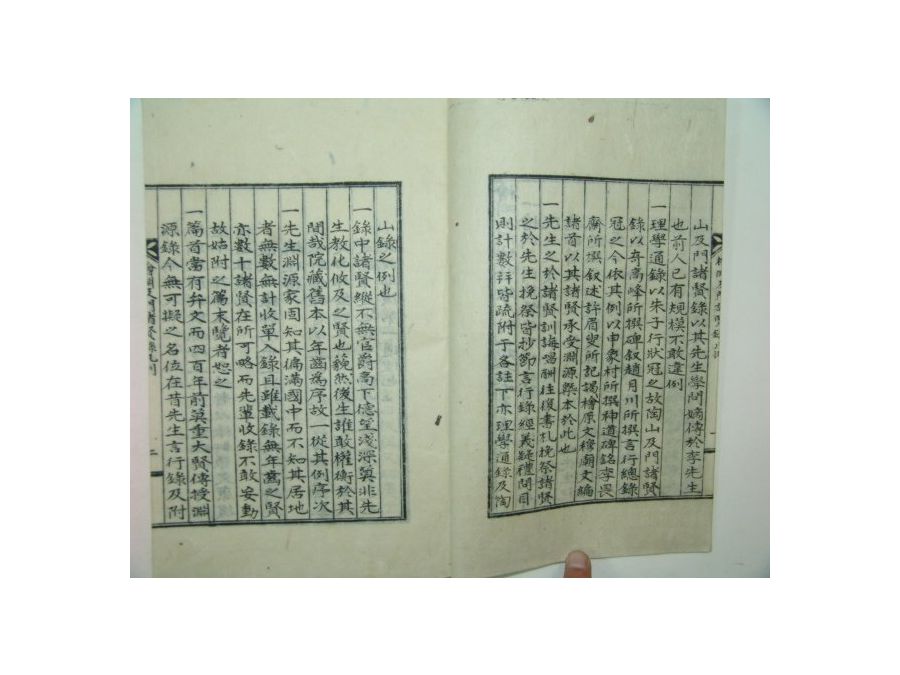 山及門諸賢錄以其先生學問嫡傳於李先生
也前人已有規模不敢違例
一理學通錄以朱子行狀冠之故陶山及門諸賢
錄以奇高峰所撰碑叙趙月川所撰言行總錄
冠之今依其例以申象村所撰神道碑銘李
齋所撰叙述許眉叟所記謁檜原文穆廟文編
諸首以其諸賢承受淵源槩本於此也
一先生之於諸賢訓誨唱酬往復書札挽祭諸賢
之於先生挽祭皆抄節言行錄經義疑禮問目
則計數弁皆疏附于各註下亦理學通錄及陶
山錄之例也
一錄中諸賢縱不無官爵高下德望淺深莫非先
生教化攸及之賢也藐然後生誰敢權衡於其
間哉院藏舊本以年齒爲序故一從其例序次
一先生淵源家固知其徧滿國中而不知其居地
者無數無計收單入錄且雖載錄無年齒之賢
亦數十諸賢在所可略而先輩收錄不敢妄動
故姑附之篇末覽者恕之
一篇首當有弁文而四百年前莫重大賢傳授淵
源錄今無可擬之名位在昔先生言行錄及附
檜淵及門諸賢錄凡例
二